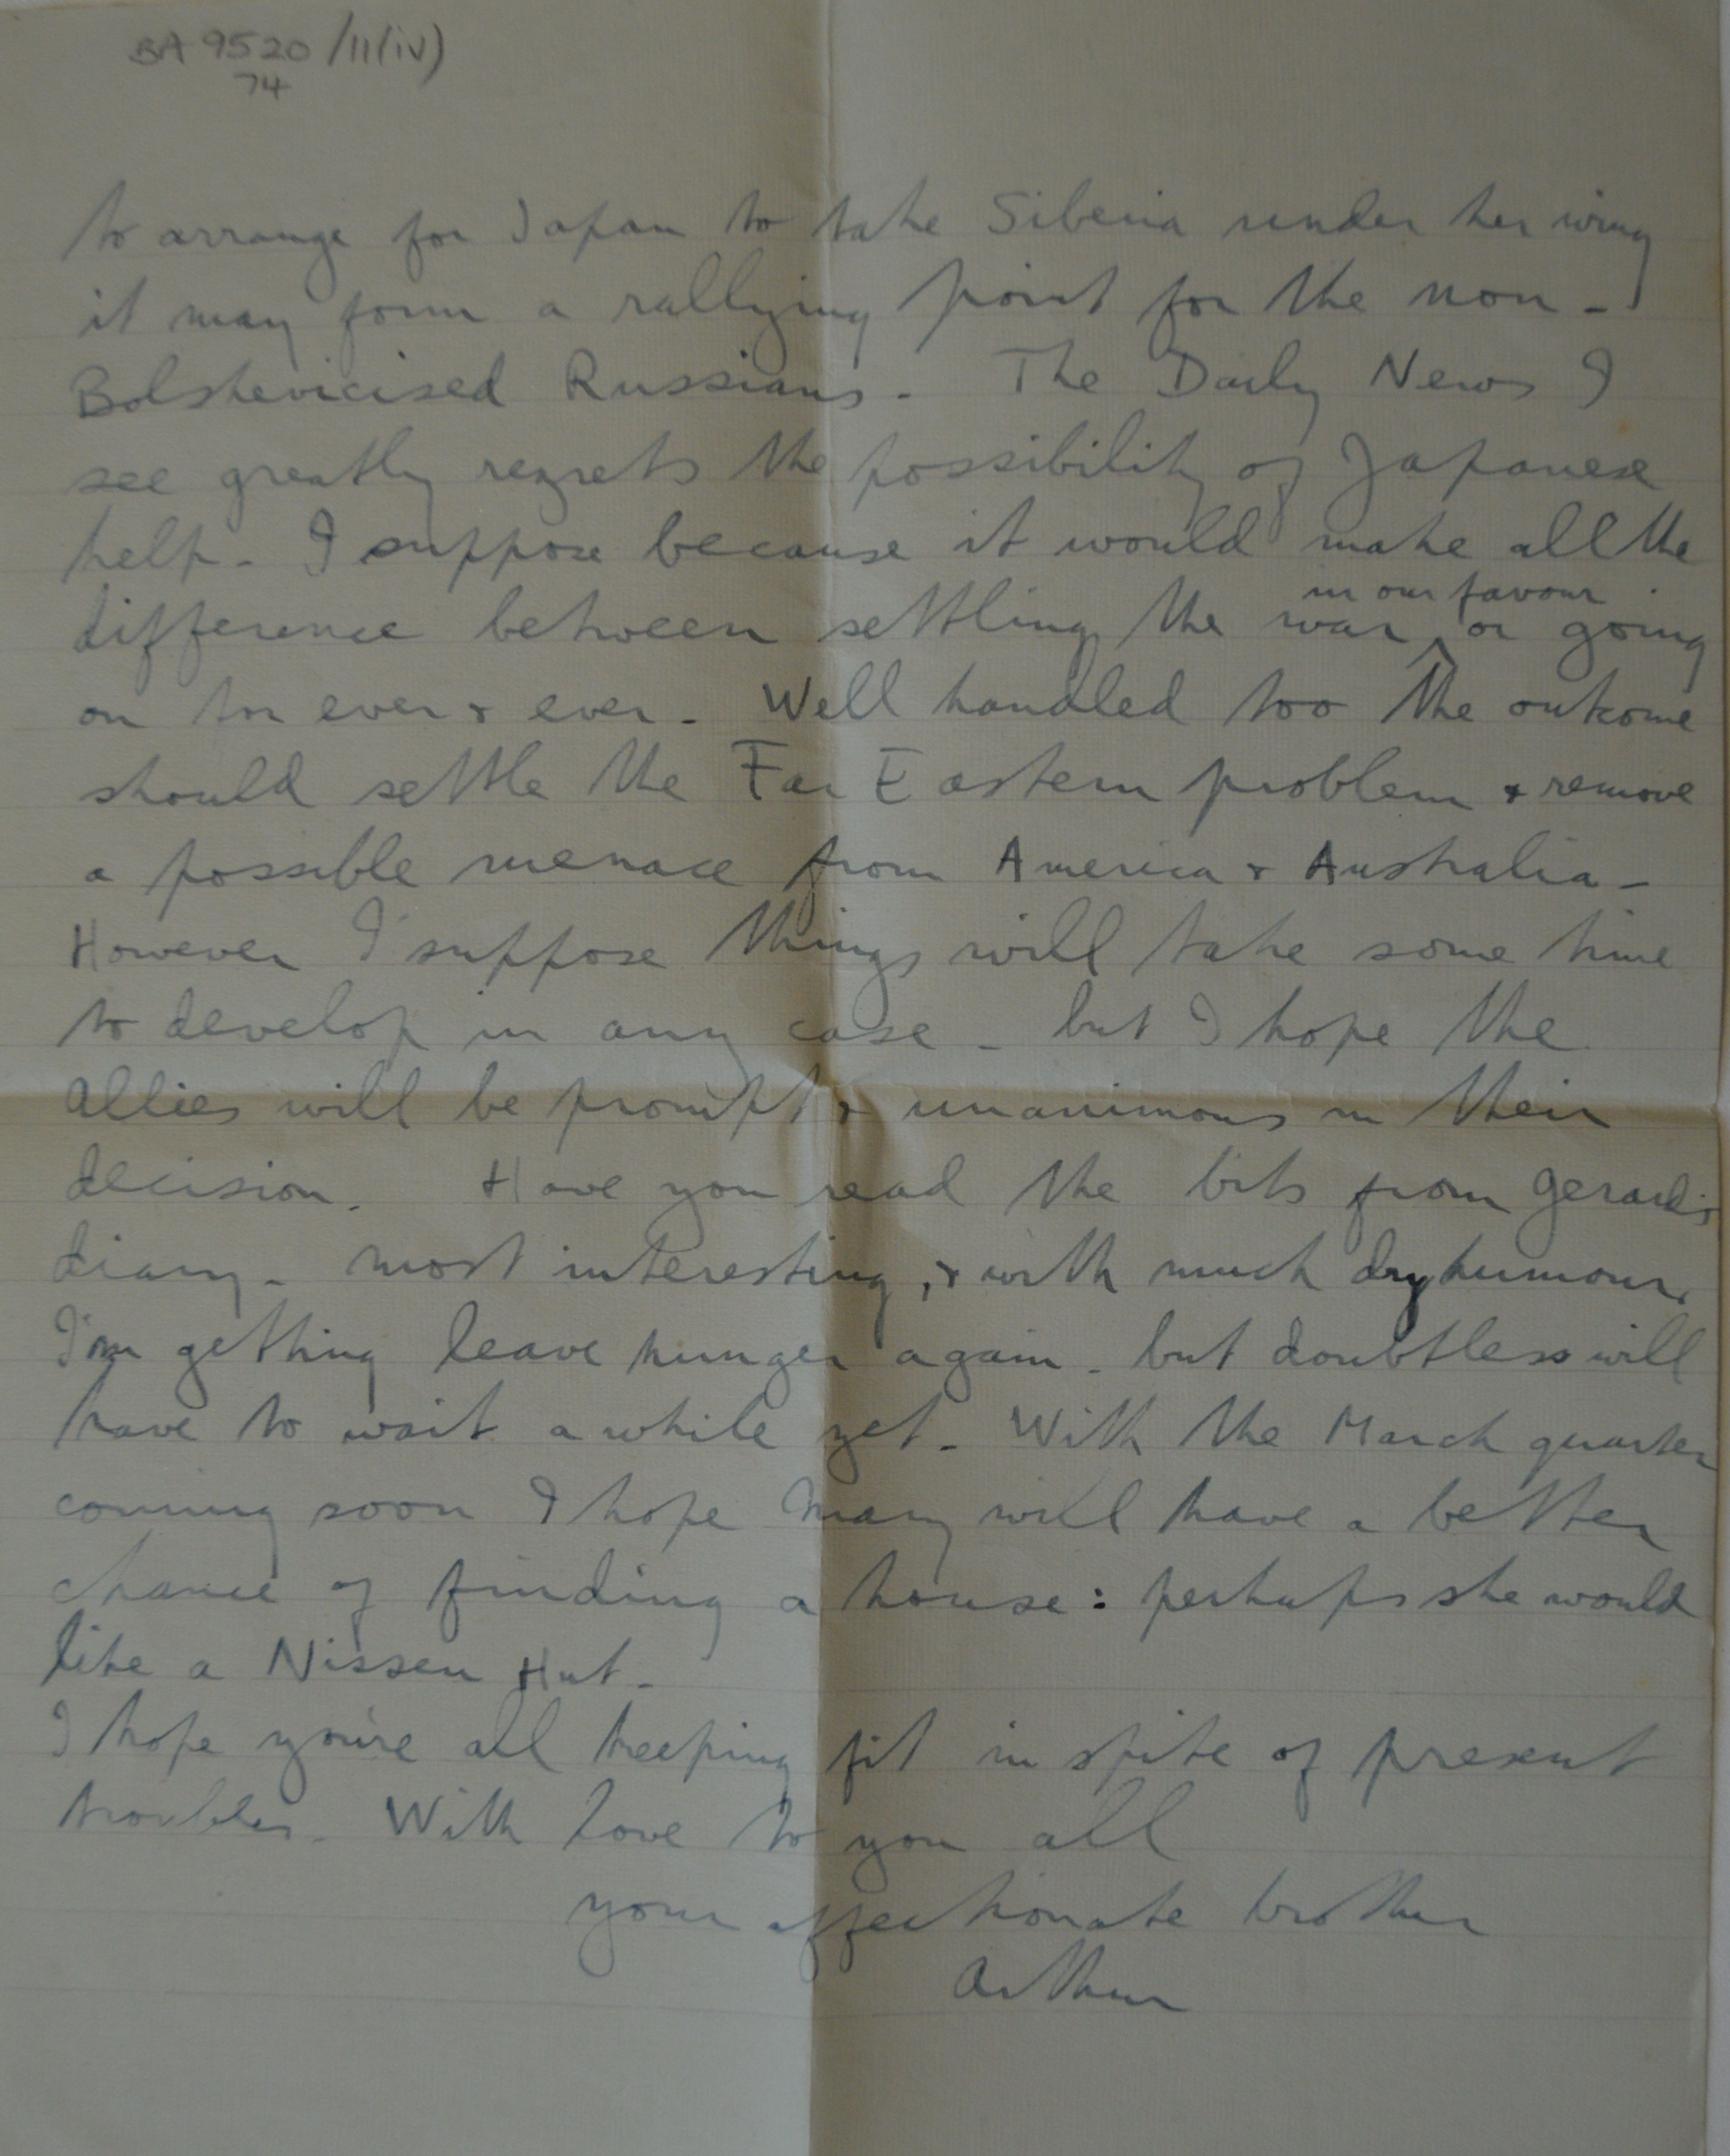 BA 9520/11(iv)
74
to arrange for Japan to take Siberia under her wing
it may form a rallying point for the non-
Bolshevicised Russians. The Daily News I
see greatly regrets the possibility of Japanese
help. I suppose because it would make all the
in our favour
difference between settling the war ^ or going
on for ever & ever. Well handled too the outcome
should settle the Far Eastern problem & remove
a possible menace from America & Australia -
However I suppose things will take some time
to develop in any case - but I hope the
Allies will be prompt & unanimous in their
decision. Have you read the bits from Gerard's
diary - most interesting, & with much dry humour.
I'm getting leave hunger again - but doubtless will
have to wait a while yet. With the March quarter
coming soon I hope Mary will have a better
chance of finding a house: perhaps she would
like a Nissen Hut -
I hope you're all keeping fit in spite of present
troubles. With love to you all
your affectionate brother
Arthur